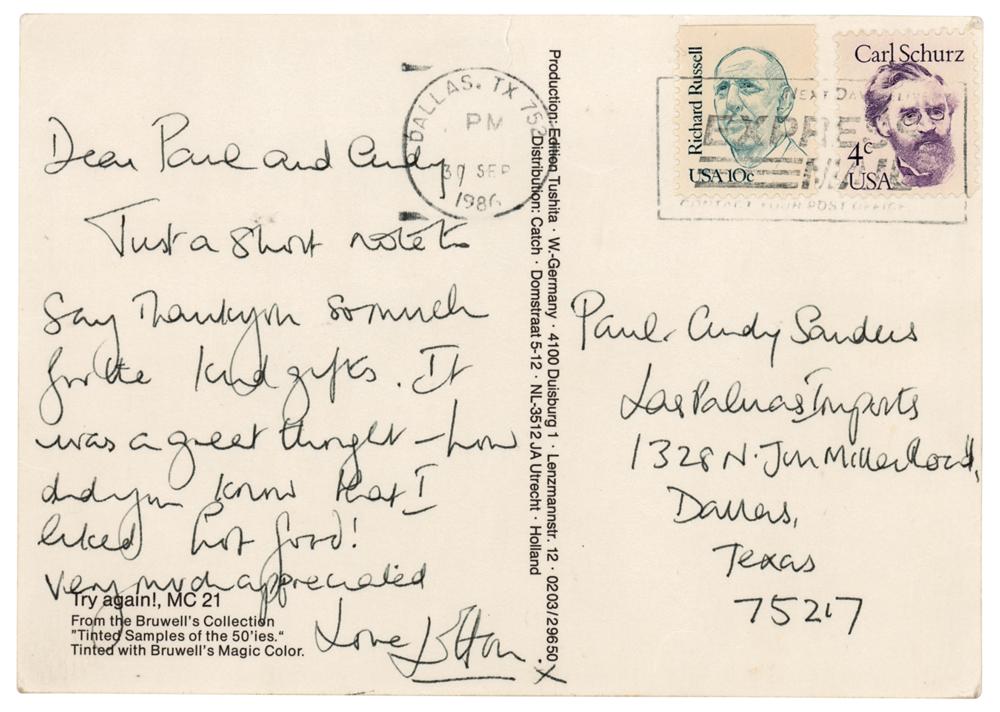 Dear Paul and Cindy
Just a short note to
say Thankyou so much
for the kind gifts. It
was a great thought – how
did you know that I
liked hot food!
very much appreciated
Love Elton. x
Try again!, MC 21
From the Bruwell's Collection
"Tinted Samples of the 50'ies."
Tinted with Bruwell's Magic Color.
Production: Edition Tushita · W.-Germany · 4100 Duisburg 1 · Lenzmannstr. 12 · 0203/29650
Distribution: Catch · Domstraat 5-12 · NL-3512 JA Utrecht · Holland
DALLAS, TX 752
PM
30 SEP
1986
Richard Russell
USA 10c
Carl Schurz
4c
USA
NEXT DAY DELIVERY
EXPRESS
MAIL
CONTACT YOUR POST OFFICE
Paul & Cindy Sanders
Las Palmas Imports
1328 N. Jim Miller Road,
Dallas,
Texas
75217